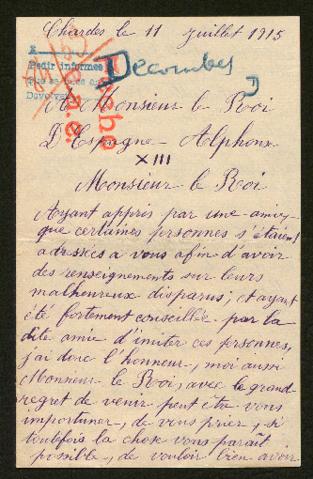 Chardes le 11 juillet 1915
Pedir informes
Decombes
A Monsieur le Roi
D'Espagne - Alphonse
XIII
Monsieur le Roi
Ayant appris par une amie
que certaines personnes s'étaient
adressées a vous afin d'avoir
des renseignements sur leurs
malheureux disparus, et ayant
été fortement conseillée par la
dite amie d'imiter ces personnes,
j'ai donc l'honneur, moi aussi
Monsieur le Roi, avec le grand
regret de venir peut être vous
importuner, de vous prier, si
toutefois la chose vous paraît
possible, de vouloir bien avoir